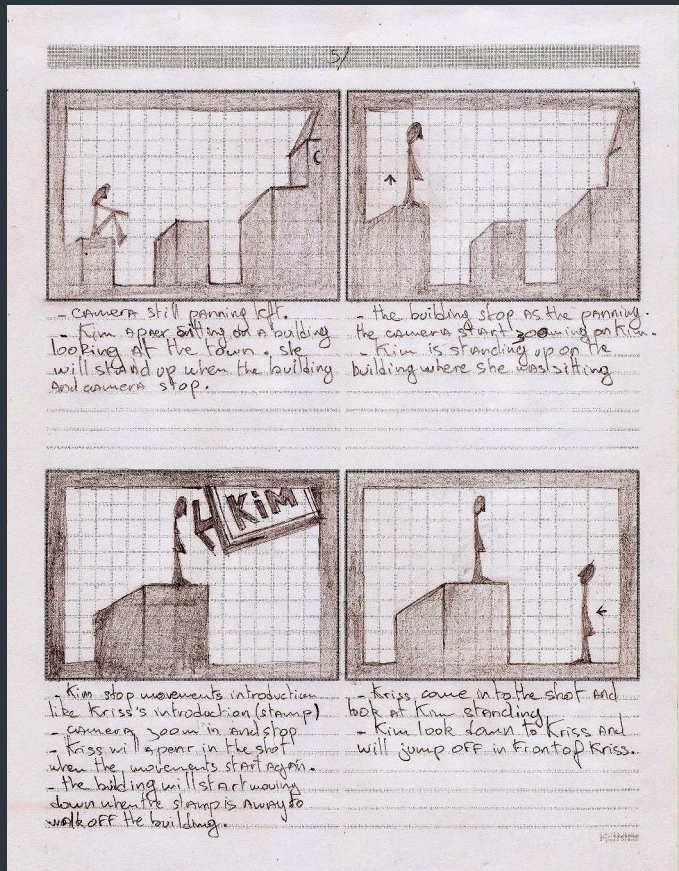 5/
- camera still panning left.
- Kim apaer sitting on a building
looking at the town. she
will stand up when the building
and camera stop.
- the building stop as the panning.
the camera start zooming on Kim.
- Kim is standing up on the
building where she was sitting
KiM
- Kim stop movements introduction
like Kriss's introduction (stamp)
- camera zoom in and stop
- Kriss will apear in the shot
when the movements start again.
- the building will start moving
down when the stamp is away to
walk off the building.
- Kriss come in to the shot and
look at Kim standing
- Kim look down to Kriss and
will jump off in front of Kriss.